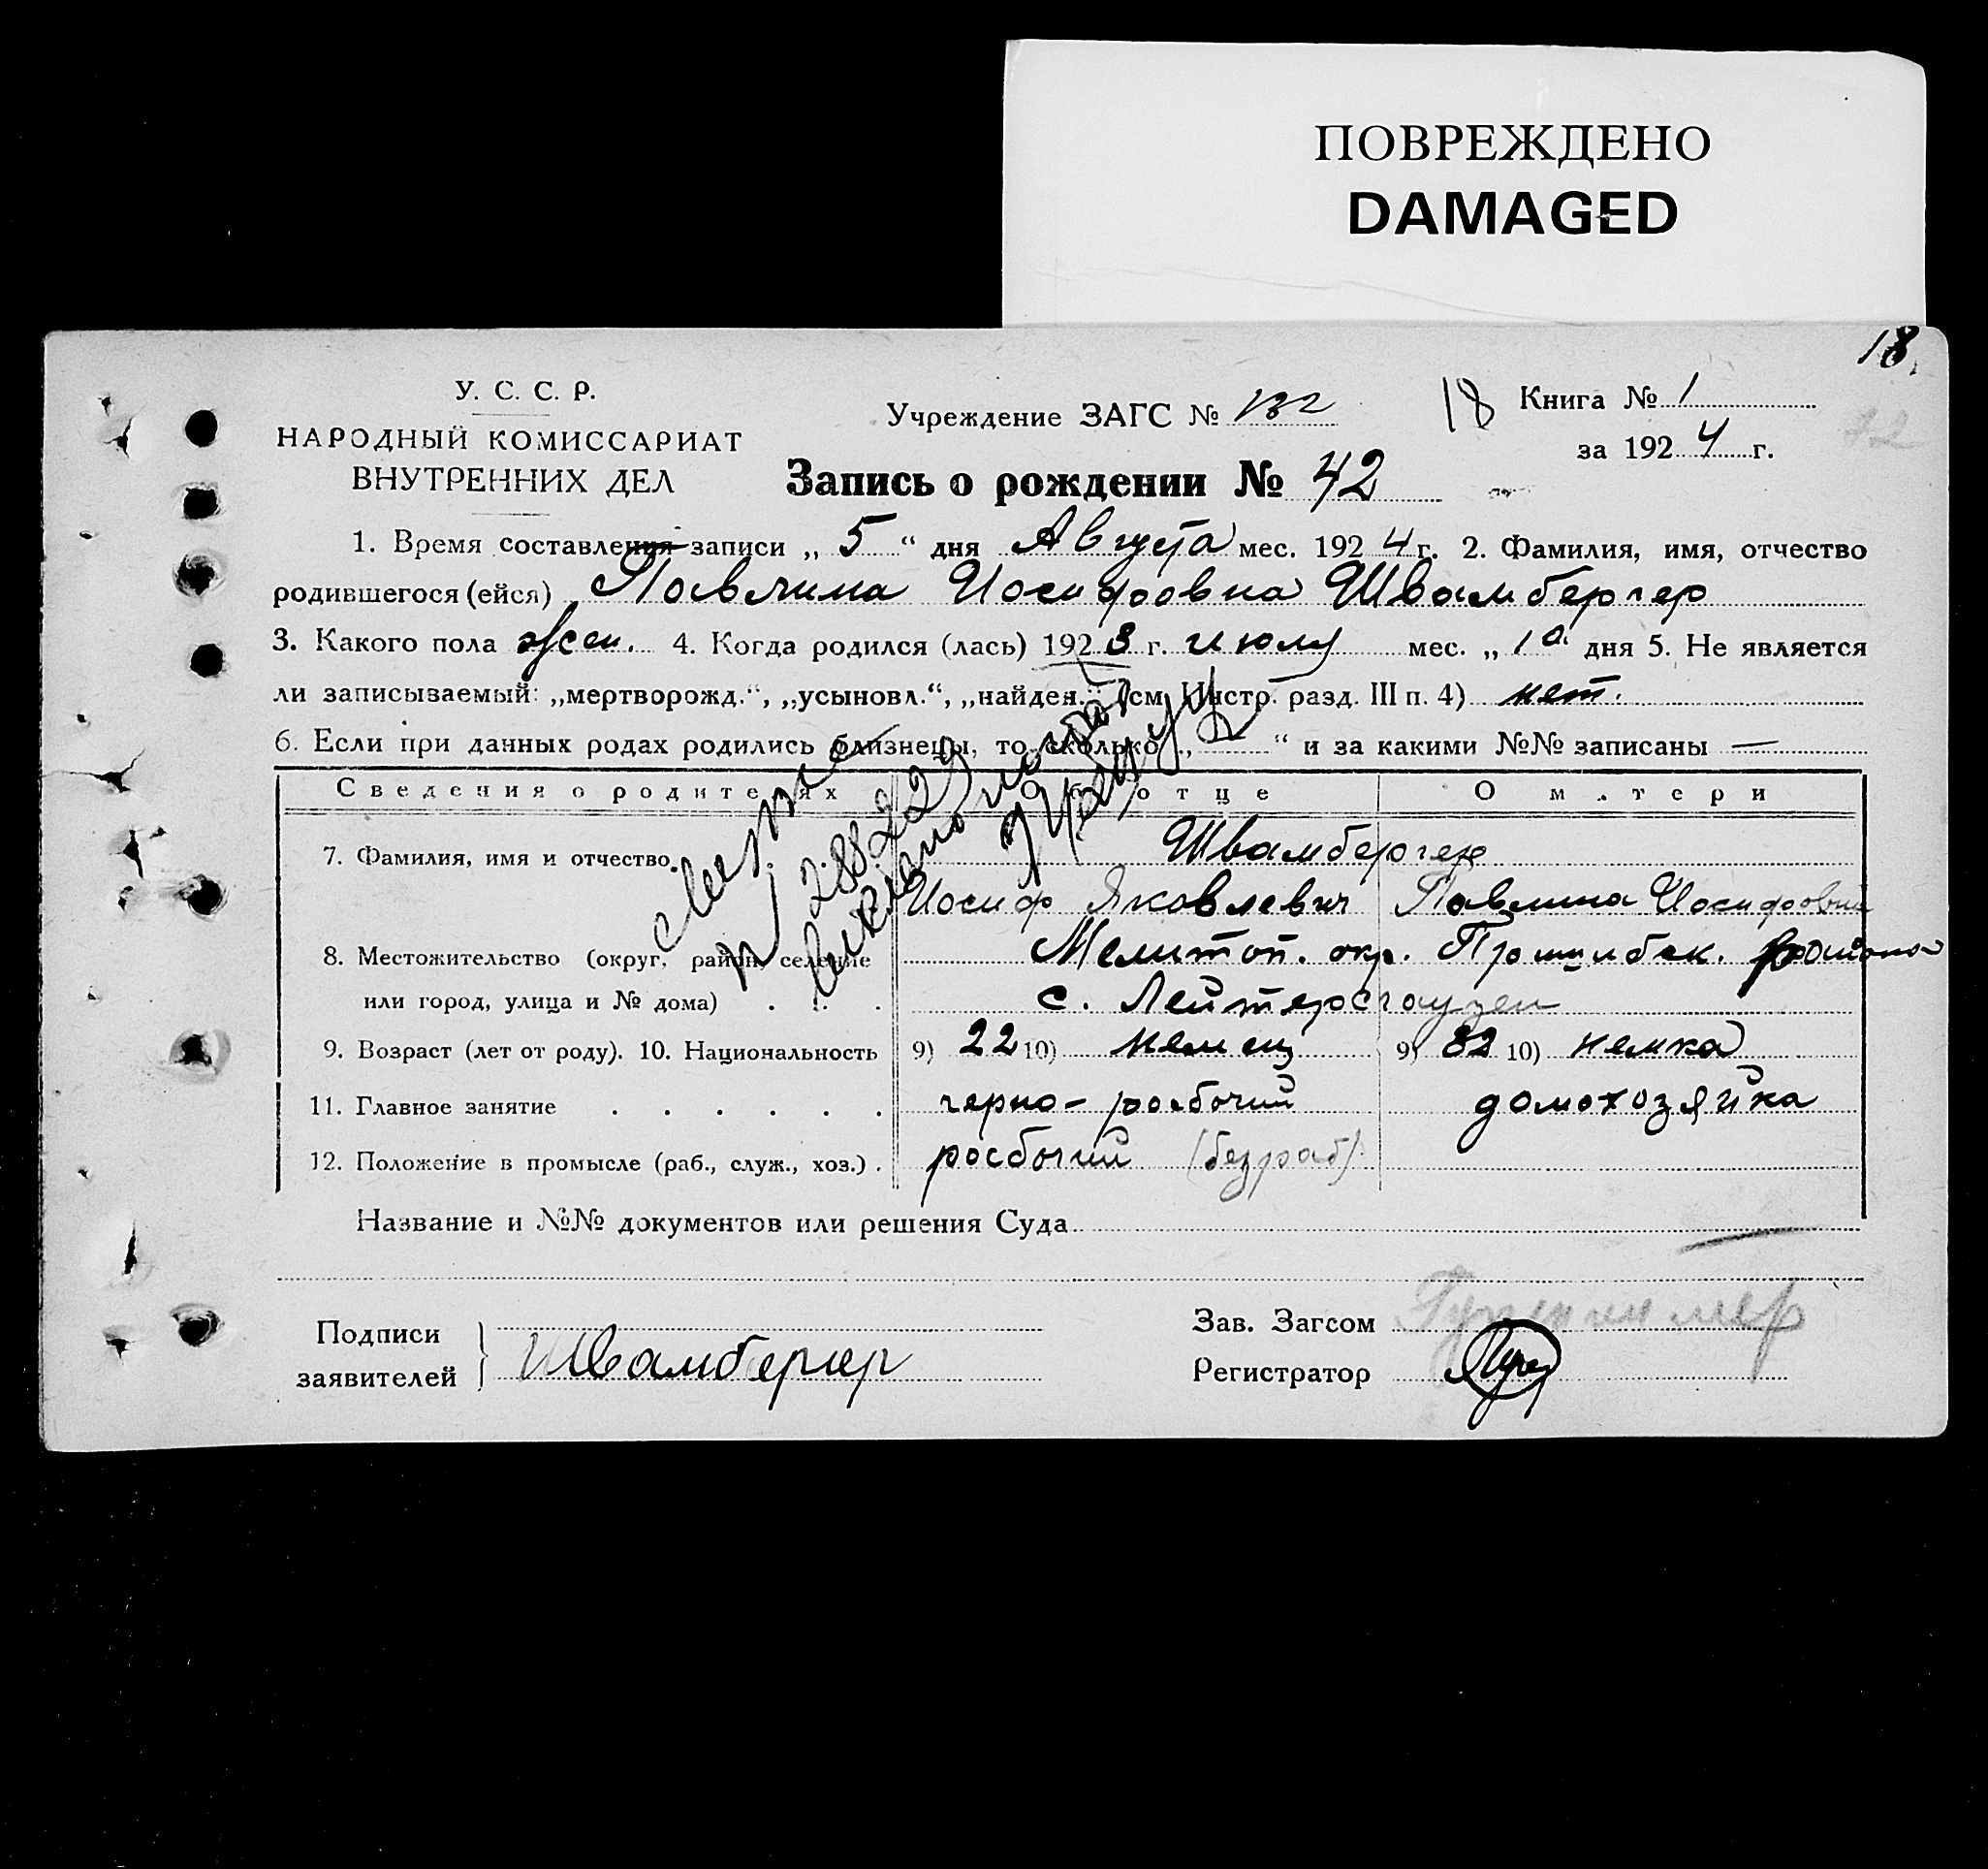 ПОВРЕЖДЕНО
DAMAGED
18
У. С. С. Р.
НАРОДНЫЙ КОМИССАРИАТ
ВНУТРЕННИХ ДЕЛ
Учреждение ЗАГС №
18
Книга № 1
за 1924 г.
42
Запись о рождении № 42
1. Время составления записи „ 5 “ дня Августа мес. 1924 г. 2. Фамилия, имя, отчество
родившегося (ейся) Павлина Иосифовна Швамбергер
3. Какого пола жен. 4. Когда родился (лась) 1923 г. июля мес. „ 1го дня 5. Не является
ли записываемый: „мертворожд.“, „усыновл.“, „найден.“ (см. Инстр. разд. III п. 4) нет.
6. Если при данных родах родились близнецы, то сколько „ — “ и за какими №№ записаны —
Сведения о родителях Об отце О матери
7. Фамилия, имя и отчество. Швамбергер
Иосиф Яковлевич Павлина Иосифовна
8. Местожительство (округ, район, селение Мелитоп. окр. Пришибск. района
или город, улица и № дома) . . . с. Лейтерсгаузен
9. Возраст (лет от роду). 10. Национальность 9) 22 10) немец 9) 10) немка
11. Главное занятие . . . . . . черно-рабочий домохозяйка
12. Положение в промысле (раб., служ., хоз.) . рабочий (безраб.)
Название и №№ документов или решения Суда
Подписи
заявителей } Швамбергер
Зав. Загсом
Регистратор